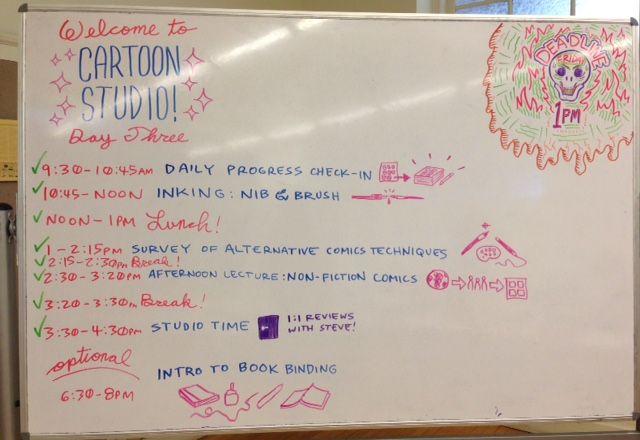 Welcome to
CARTOON
STUDIO!
Day Three
DEADLINE
FRIDAY
1PM
9:30-10:45AM DAILY PROGRESS CHECK-IN
10:45-NOON INKING: NIB & BRUSH
NOON-1PM Lunch!
1-2:15PM SURVEY OF ALTERNATIVE COMICS TECHNIQUES
2:15-2:30PM Break!
2:30-3:20PM AFTERNOON LECTURE: NON-FICTION COMICS
3:20-3:30PM Break!
3:30-4:30PM STUDIO TIME
1:1 REVIEWS
WITH STEVE!
optional
INTRO TO BOOK BINDING
6:30-8PM